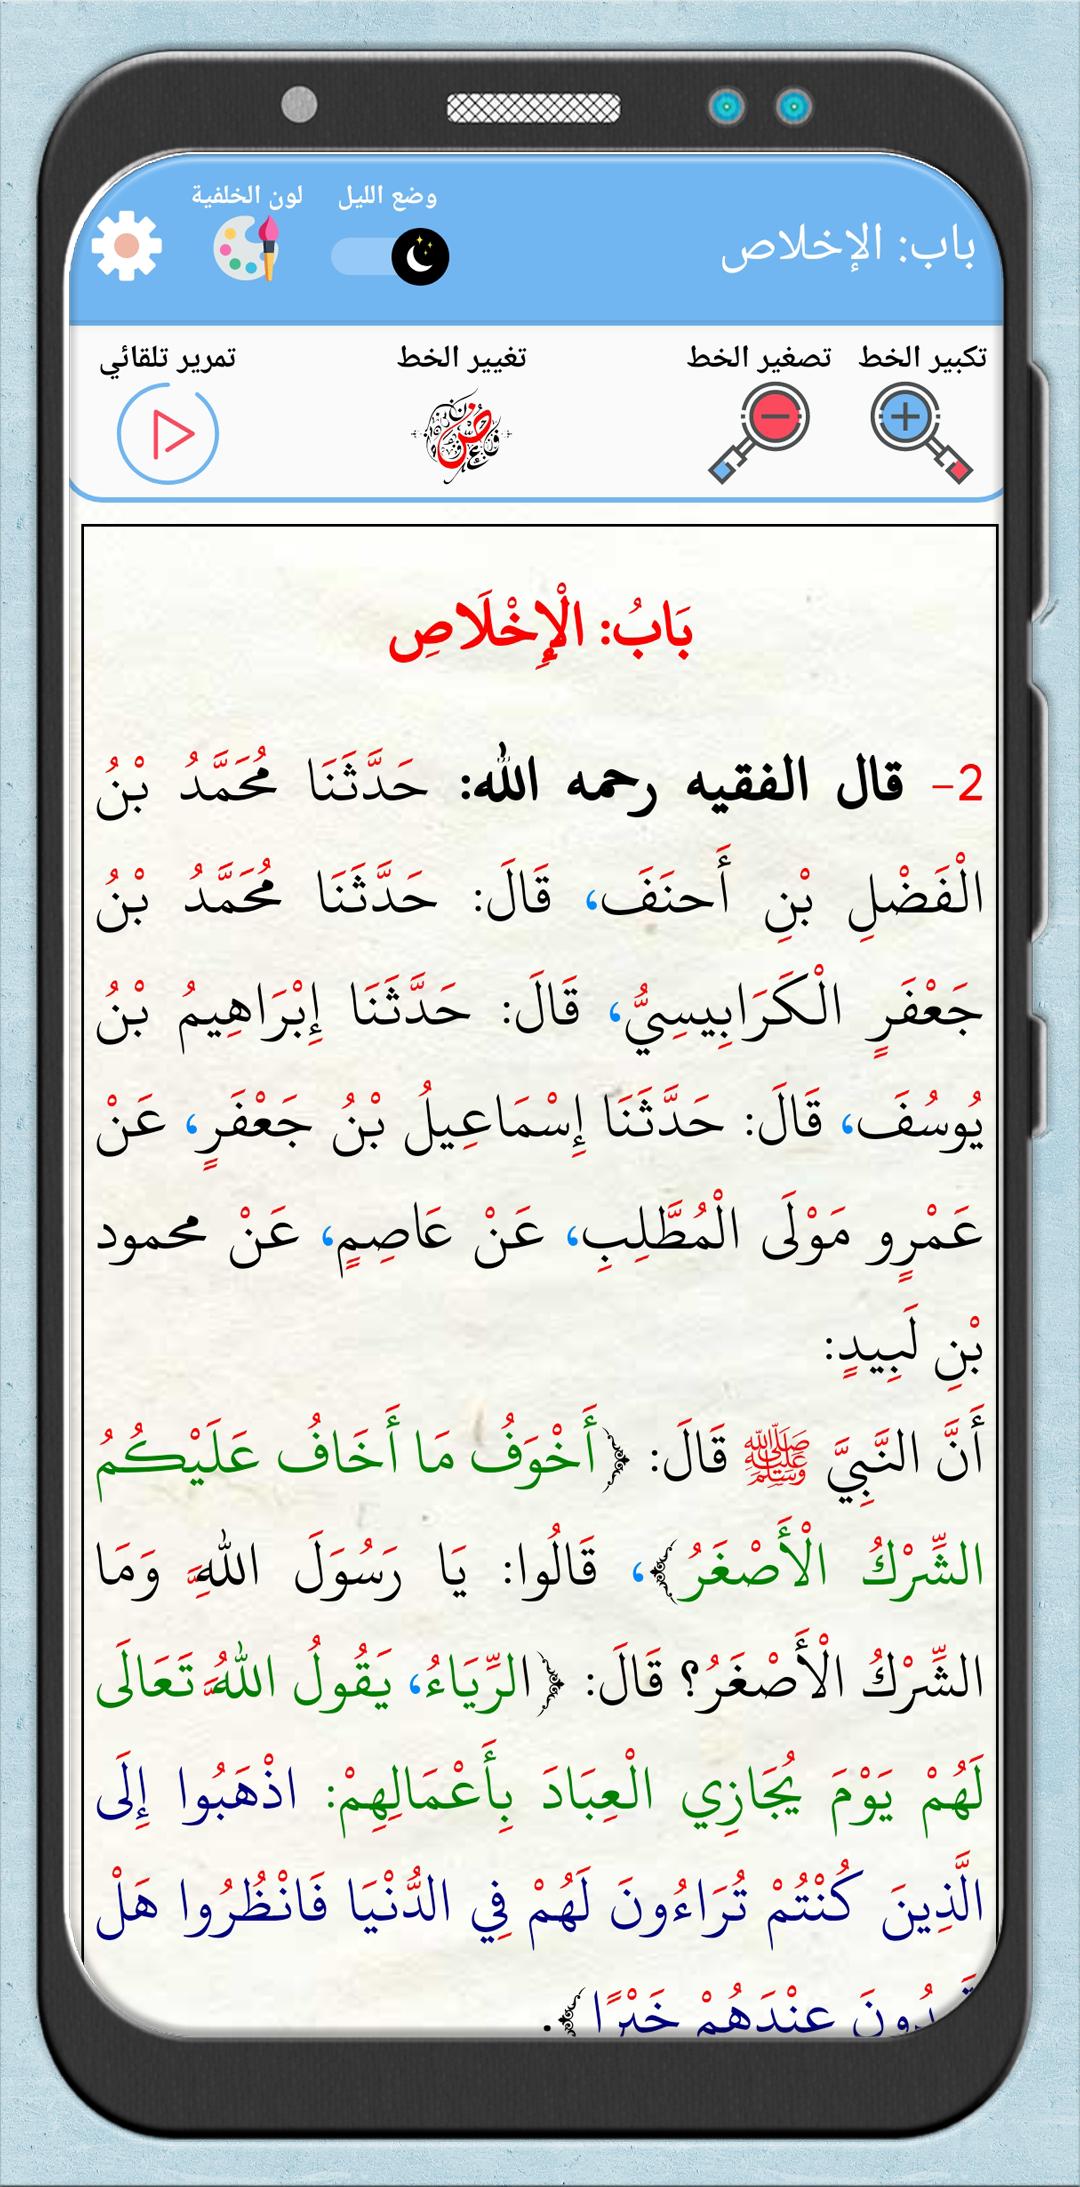 لون الخلفية
وضع الليل
باب: الإخلاص
تكبير الخط
تصغير الخط
تغيير الخط
تمرير تلقائي
بَابُ: الْإِخْلَاصِ
2- قال الفقيه رحمه الله: حَدَّثَنَا مُحَمَّدُ بْنُ
الْفَضْلِ بْنِ أَحنَفَ، قَالَ: حَدَّثَنَا مُحَمَّدُ بْنُ
جَعْفَرٍ الْكَرَابِيسِيُّ، قَالَ: حَدَّثَنَا إِبْرَاهِيمُ بْنُ
يُوسُفَ، قَالَ: حَدَّثَنَا إِسْمَاعِيلُ بْنُ جَعْفَرٍ، عَنْ
عَمْرٍو مَوْلَى الْمُطَّلِبِ، عَنْ عَاصِمٍ، عَنْ محمود
بْنِ لَبِيدٍ:
أَنَّ النَّبِيَّ ﷺ قَالَ: ﴿أَخْوَفُ مَا أَخَافُ عَلَيْكُمُ
الشِّرْكُ الْأَصْغَرُ﴾، قَالُوا: يَا رَسُولَ اللَّهِ وَمَا
الشِّرْكُ الْأَصْغَرُ؟ قَالَ: ﴿الرِّيَاءُ، يَقُولُ اللَّهُ تَعَالَى
لَهُمْ يَوْمَ يُجَازِي الْعِبَادَ بِأَعْمَالِهِمْ: اذْهَبُوا إِلَى
الَّذِينَ كُنْتُمْ تُرَاءُونَ لَهُمْ فِي الدُّنْيَا فَانْظُرُوا هَلْ
عِنْدَهُمْ خَيْرًا﴾.